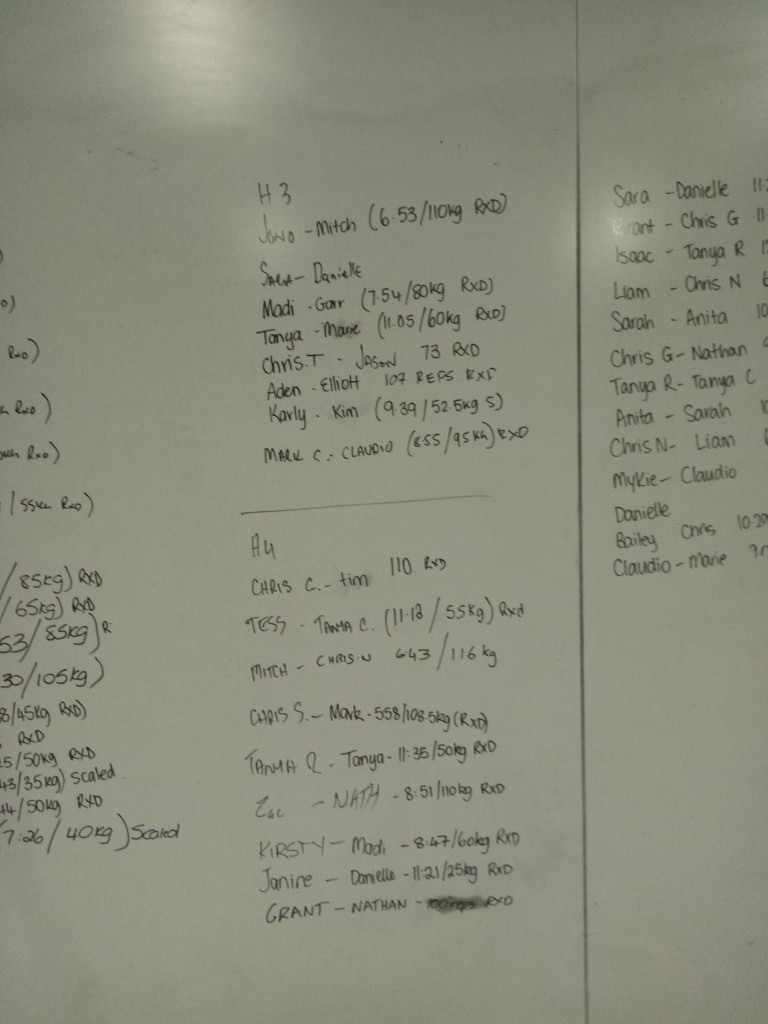 RXD)
RXD)
RXD)
/55kg RXD)
/85kg) RXD
/65kg) RXD
53/85kg) R
30/105kg)
8/45kg RXD)
RXD
25/50kg RXD
43/35kg) Scaled
44/50kg RXD
(7:26/40kg) Scaled
H3
JONO - Mitch (6.53/110kg RXD)
SARA - Danielle
Madi - Garr (7.54/80kg RXD)
Tanya - Marie (11.05/60kg RXD)
Chris.T - JASON 73 RXD
Aden - Elliott 107 REPS
Karly - Kim (9.39/52.5kg S)
MARK C. - CLAUDIO (8.55/95KG) RXD
H4
CHRIS C. - tim 110 RXD
TESS - TANYA C. (11.18/55kg) Rxd
MITCH - CHRIS.N 6.43/116kg
CHRIS S. - Mark - 558/108.5kg (RxD)
TANYA R. - Tanya - 11:35/50kg RXD
Zac - NATH - 8:51/110kg RXD
KIRSTY - Madi - 8:47/60kg RXD
Janine - Danielle - 11:21/25kg RXD
GRANT - NATHAN - RXD
Sara - Danielle 11:
Grant - Chris G 11
Isaac - Tanya R
Liam - Chris N 6
Sarah - Anita 10
Chris G - Nathan
Tanya R - Tanya C
Anita - Sarah
Chris N - Liam
Mykie - Claudio
Danielle
Bailey Chris 10:20
Claudio - Marie